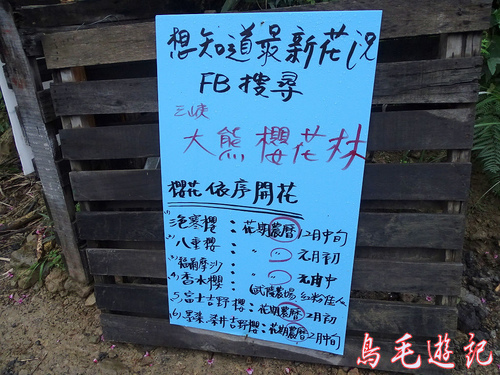 想知道最新花況
FB搜尋
三峽
大熊櫻花林
櫻花依序開花
(1)寒櫻:花期農曆12月中旬
(2)八重櫻:〃 〃 元月初
(3)福爾摩沙 〃 〃 元月中
(4)香水櫻:(武陵農場 紅粉佳人
(5)富士吉野櫻:花期農曆2月初
(6)昭和櫻.染井吉野櫻:花期農曆2月中旬
鳥毛遊記